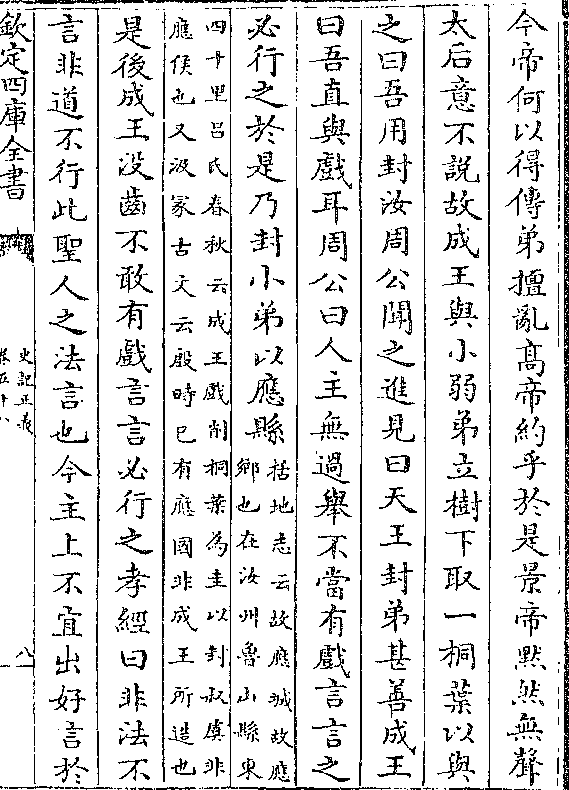 今帝何以得傳弟擅亂髙帝約乎於是景帝黙然無聲
太后意不説故成王與小弱弟立樹下取一桐葉以與
之曰吾用封汝周公聞之進見曰天王封弟甚善成王
曰吾直與戲耳周公曰人主無過舉不當有戲言言之
必行之於是乃封小弟以應縣
括地志云故應城故應
鄉也在汝州魯山縣東
四十里吕氏春秋云成王戲削桐葉為圭以封叔虞非
應侯也又汲冢古文云殷時已有應國非成王所造也
是後成王没齒不敢有戲言言必行之孝經曰非法不
言非道不行此聖人之法言也今主上不宜出好言於
欽定四庫全書
史記正義
卷五十八
八